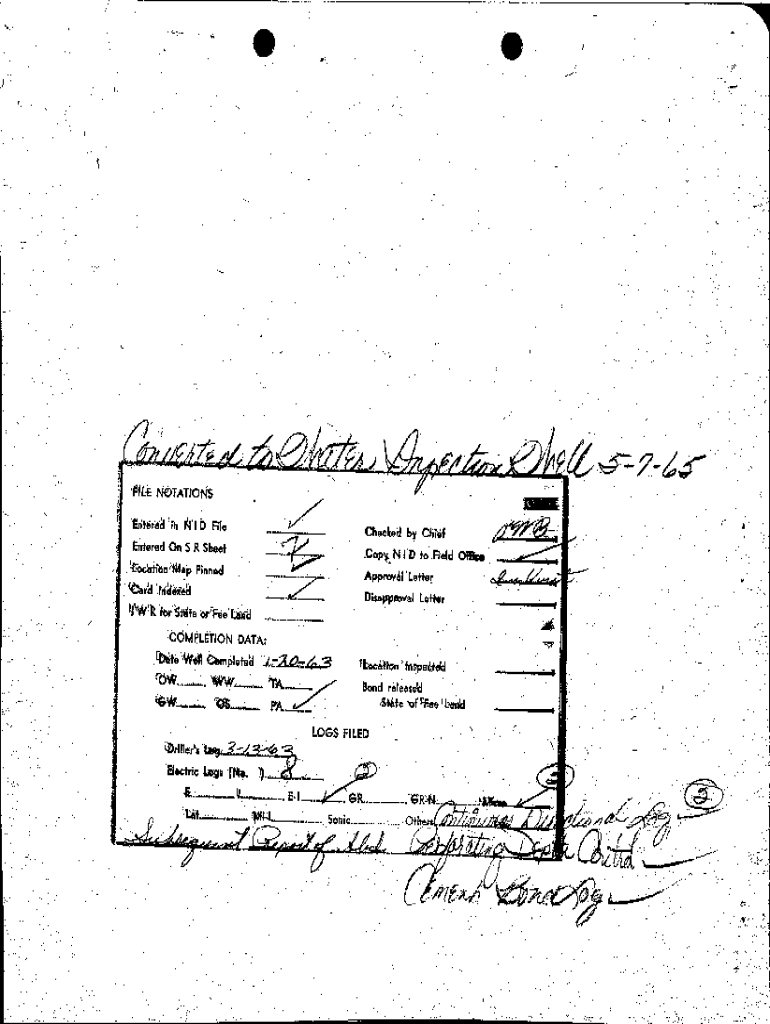 Converted to Water Injection Well 5-7-65
FILE NOTATIONS
Entered in N I D File ✓
Entered On S R Sheet
Location Map Pinned ✓
Card Indexed ✓
I W R for State or Fee Land
Checked by Chief PMB
Copy N I D to Field Office ✓
Approval Letter
Disapproval Letter
COMPLETION DATA:
Date Well Completed 1-20-63
OW WW TA
GW OS PA ✓
Location Inspected
Bond released
State of Fee Land
LOGS FILED
Driller's Log 3-13-63
Electric Logs (No. ) 8
E I E-I ✓ GR GR-N Micro ✓
Lat Mi-L Sonic Others Continuous Directional Log ✓ (2)
Subsequent Report of Abd. Perforating Depth Control ✓
Cement Bond Log ✓